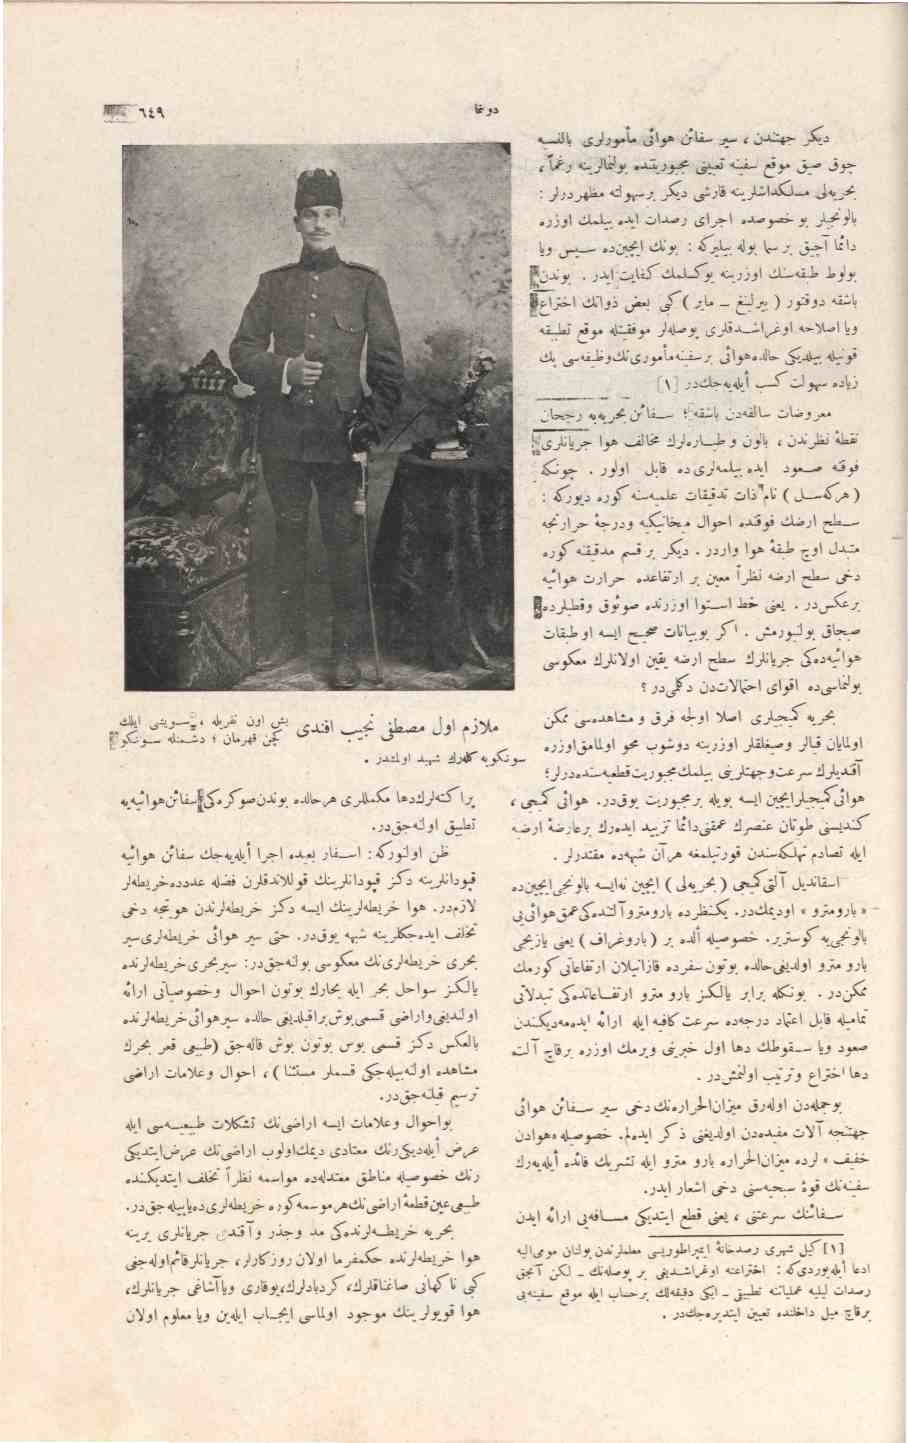 دونما
٦٤٩
ديكر جهتدن ، سير سفائن هوائى مأمورلرى بالنسبه
چوق صيق موقع سفينه تعيينى مجبوريتنده بولنمالرينه رغماً ،
بحريه‌لى مسلكداشلرينه قارشى ديكر برسهولته مظهردرلر :
بالونجيلر بو خصوصده اجراى رصدات ايده بيلمك اوزره
دائما آچيق بر سما بوله بيليركه : بونك ايچين‌ده سيس ويا
بولوط طبقه‌سنك اوزرينه يوكسلمك كفايت ايدر . بوندن
باشقه دوقتور ( بيرلينغ ـ ماير ) كبى بعض ذواتك اختراع
ويا اصلاحه اوغراشدقلرى پوصله‌لر موفقيتله موقع تطبيقه
قونيله بيلديكى حالده هوائى بر سفينه مأمورى‌نك وظيفه‌سى پك
زياده سهولت كسب أيله‌يه‌جك‌در [١]
معروضات سالفه‌دن باشقه ؛ سفائن بحريه‌يه رجحان
نقطهٔ نظرندن ، بالون وطياره‌لرك مخالف هوا جريانلرى
فوقنه صعود ايده بيلمه‌لرى‌ده قابل اولور . چونكه
( هركه‌سل ) نام ذات تدقيقات علميه‌سنه كوره ديوركه :
سطح ارضك فوقنده احوال ميخانيكيه ودرجهٔ حرارتجه
متبدل اوچ طبقهٔ هوا واردر . ديكر بر قسم مدقيقنه كوره
دخى سطح ارضه نظراً معين بر ارتفاعده حرارت هوائيه
برعكس‌در . يعنى خط استوا اوزرنده صوئوق وقطبلرده
صيجاق بولنيورمش . اكر بوبيانات صحيح ايسه او طبقات
هوائيه‌ده‌كى جريانلرك سطح ارضه يقين اولانلرك معكوسى
بولنماسى‌ده اقواى احتمالات‌دن دكلمى‌در ؟
بحريه كميجيلرى اصلا اولجه فرق و مشاهده‌سى ممكن
اولمايان قيالر وصيغلقلر اوزرينه دوشوب محو اولمامق اوزره
آقنديلرك سرعت وجهتلرينى بيلمك مجبوريت قطعيه‌سنده‌درلر ؛
هوائى كميجيلر ايچين ايسه بويله بر مجبوريت يوق‌در. هوائى كميجى ،
كنديسنى طوتان عنصرك عمقنى دائما تزييد ايده‌رك برعارضهٔ ارضيه
ايله تصادم تهلكه‌سندن قورتيلمغه هرآن شبهه‌ده مقتدرلر .
اسقانديل آلتى كميجى ( بحريه‌لى ) ايچين نه‌ايسه بالونجى ايچين‌ده
« بارومترو » اوديمك‌در. يكنظرده بارومترو آلتنده‌كى عمق هوائى‌يى
بالونجى‌يه كوسترير. خصوصيله ألده بر ( باروغراف ) يعنى يازيجى
بارو مترو اولديغى حالده بوتون سفرده قازانيلان ارتفاعاتى كورمك
ممكن‌در . بونكله برابر يالكز بارو مترو ارتفاعانده‌كى تبدلاتى
تماميله قابل اعتماد درجه‌ده سرعت كافيه ايله ارائه ايده‌مه‌ديكندن
صعود ويا سقوطك دها اول خبرينى ويرمك اوزره برقاچ آلت
دها اختراع وترتيب اولنمش‌در .
بوجمله‌دن اوله‌رق ميزان‌الحراره‌نك دخى سير سفائن هوائى
جهتنجه آلات مفيده‌دن اولديغنى ذكر ايده‌لم. خصوصيله « هوادن
خفيف » لرده ميزان‌الحراره بارو مترو ايله تشريك فائده أيله‌يه‌رك
سفينه‌نك قوهٔ سبحيه‌سنى دخى اشعار ايدر.
سفائنك سرعتنى ، يعنى قطع ايتديكى مسافه‌يى ارائه ايدن
[١] كيل شهرى رصدخانهٔ ايمپراطوريسى معلملرندن بولنان مومى‌اليه
ادعا أيله‌يوردى‌كه : اختراعنه اوغراشديغى بر پوصله‌نك ـ لكن آنجق
رصدات ليليه عملياتنه تطبيق ـ ايكى دقيقه‌لك برحساب ايله موقع سفينه‌يى
برقاچ ميل داخلنده تعيين ايتديره‌جك‌در .
ملازم اول مصطفى نجيب افندى
بش اون نفريله ، سويشى ايلك
كچن قهرمان ؛ دشمنله سونكو
سونكويه كله‌رك شهيد اولمشدر .
پراكته‌لرك‌دها مكمللرى هرحالده بوندن‌صوكره‌كى سفائن هوائيه‌يه
تطبيق اولنه‌جق‌در.
ظن اولنوركه : اسفار بعيده اجرا أيله‌يه‌جك سفائن هوائيه
قپودانلرينه دكز قپودانلرينك قوللاندقلرن فضله عدده‌ده خريطه‌لر
لازم‌در. هوا خريطه‌لرينك ايسه دكز خريطه‌لرندن هويتجه دخى
تخلف ايده‌جكلرينه شبهه يوق‌در. حتى سير هوائى خريطه‌لرى سير
بحرى خريطه‌لرى‌نك معكوسى بولنه‌جق‌در: سيربحرى خريطه‌لرنده
يالكز سواحل بحر ايله بحارك بوتون احوال وخصوصياتى ارائه
اولنديغى واراضى قسمى بوش براقيلديغى حالده سيرهوائى خريطه‌لرنده
بالعكس دكز قسمى بوس بوتون بوش قاله‌جق (طبيعى قعر بحرك
مشاهده اولنه‌بيله‌جكى قسملر مستثنا ) ، احوال وعلامات اراضى
ترسيم قيلنه‌جق‌در.
بواحوال وعلامات ايسه اراضى‌نك تشكلات طبيعيه‌سى ايله
عرض أيله‌ديكى‌رنك معتادى ديمك‌اولوب اراضى‌نك عرض‌ايتديكى
رنك خصوصيله مناطق معتدله‌ده مواسمه نظراً تخلف ايتديكنده
طبيعى‌عين‌قطعهٔ اراضى‌نك هرموسمه‌كوره خريطه‌لرى‌ده‌ياپيله‌جق‌در.
بحريه خريطه‌لرنده‌كى مد وجذر وآقندى جريانلرى يرينه
هوا خريطه‌لرنده حكمفرما اولان روزكارلر، جريانلرقائم‌اوله‌جغى
كبى ناكهانى صاغناقلرك، كردبادلرك، يوقارى وياآشاغى جريانلرك،
هوا قويولرينك موجود اولماسى ايجاب ايله‌ين ويا معلوم اولان